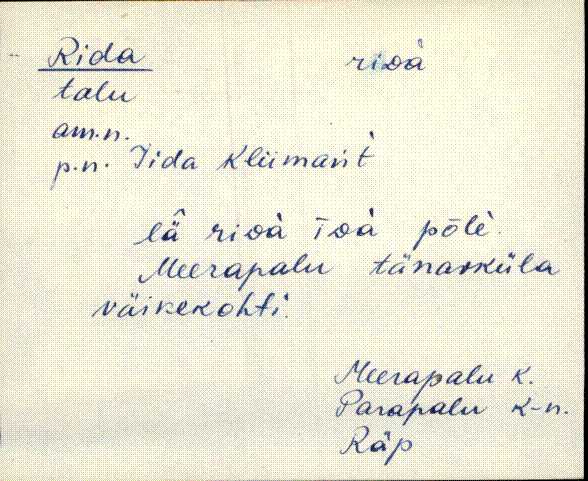 Rida riᴅà
talu
am.n.
p.n. Iida Kliimant̀
lä̂ riᴅà īᴅà pōlè.
Meerapalu tänavküla
väikekohti.
Meerapalu k.
Parapalu k-n.
Räp